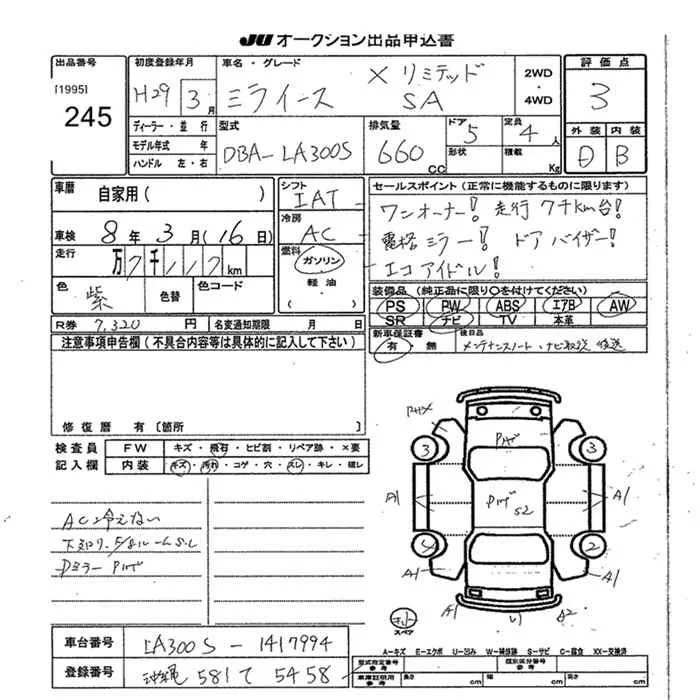 JU オークション出品申込書
出品番号
[1995]
245
初度登録年月
H29 3月
車名・グレード
ミライース
X リミテッド
SA
2WD
・
4WD
評価点
3
ディーラー・並行
モデル年式 年
ハンドル 左・右
型式
DBA-LA300S
排気量
660 CC
ドア 5
形状
定員 4人
積載 Kg
外装 内装
D B
車歴
自家用( )
車検 8年 3月(16日)
走行 万 千 km
色
紫
色替
色コード
シフト
IAT
冷房
AC
燃料
ガソリン
軽油
( )
セールスポイント(正常に機能するものに限ります)
ワンオーナー! 走行7千Km台!
電格ミラー! ドアバイザー!
エコアイドル!
装備品(純正品に限り○を付けてください)
PS PW ABS エアB AW
SR ナビ TV 本革
新車保証書
有・無
後日品
メンテナンスノート、ナビ取説 後送
R券 7,320 円
名変通知期限 月 日
注意事項申告欄(不具合内容等は具体的に記入して下さい)
修復歴 有〔箇所 〕
検査員
記入欄
FW キズ・飛石・ヒビ割・リペア跡・×要
内装 キズ・汚れ・コゲ・穴・スレ・キレ・破レ
AC冷えない
下廻りサ、
Dミラー
3
3
2
A1
A1
A1
A1
A1
A2
S2
スペア
A-キズ E-エクボ U-凹み W-補修跡 S-サビ C-腐食 XX-交換済
車台番号 LA300S-1417994
登録番号 沖縄 581 て 5458
型式指定番号
参考
類別区分番号
参考
車庫証明用
参考
長さ cm 幅 cm 高さ cm